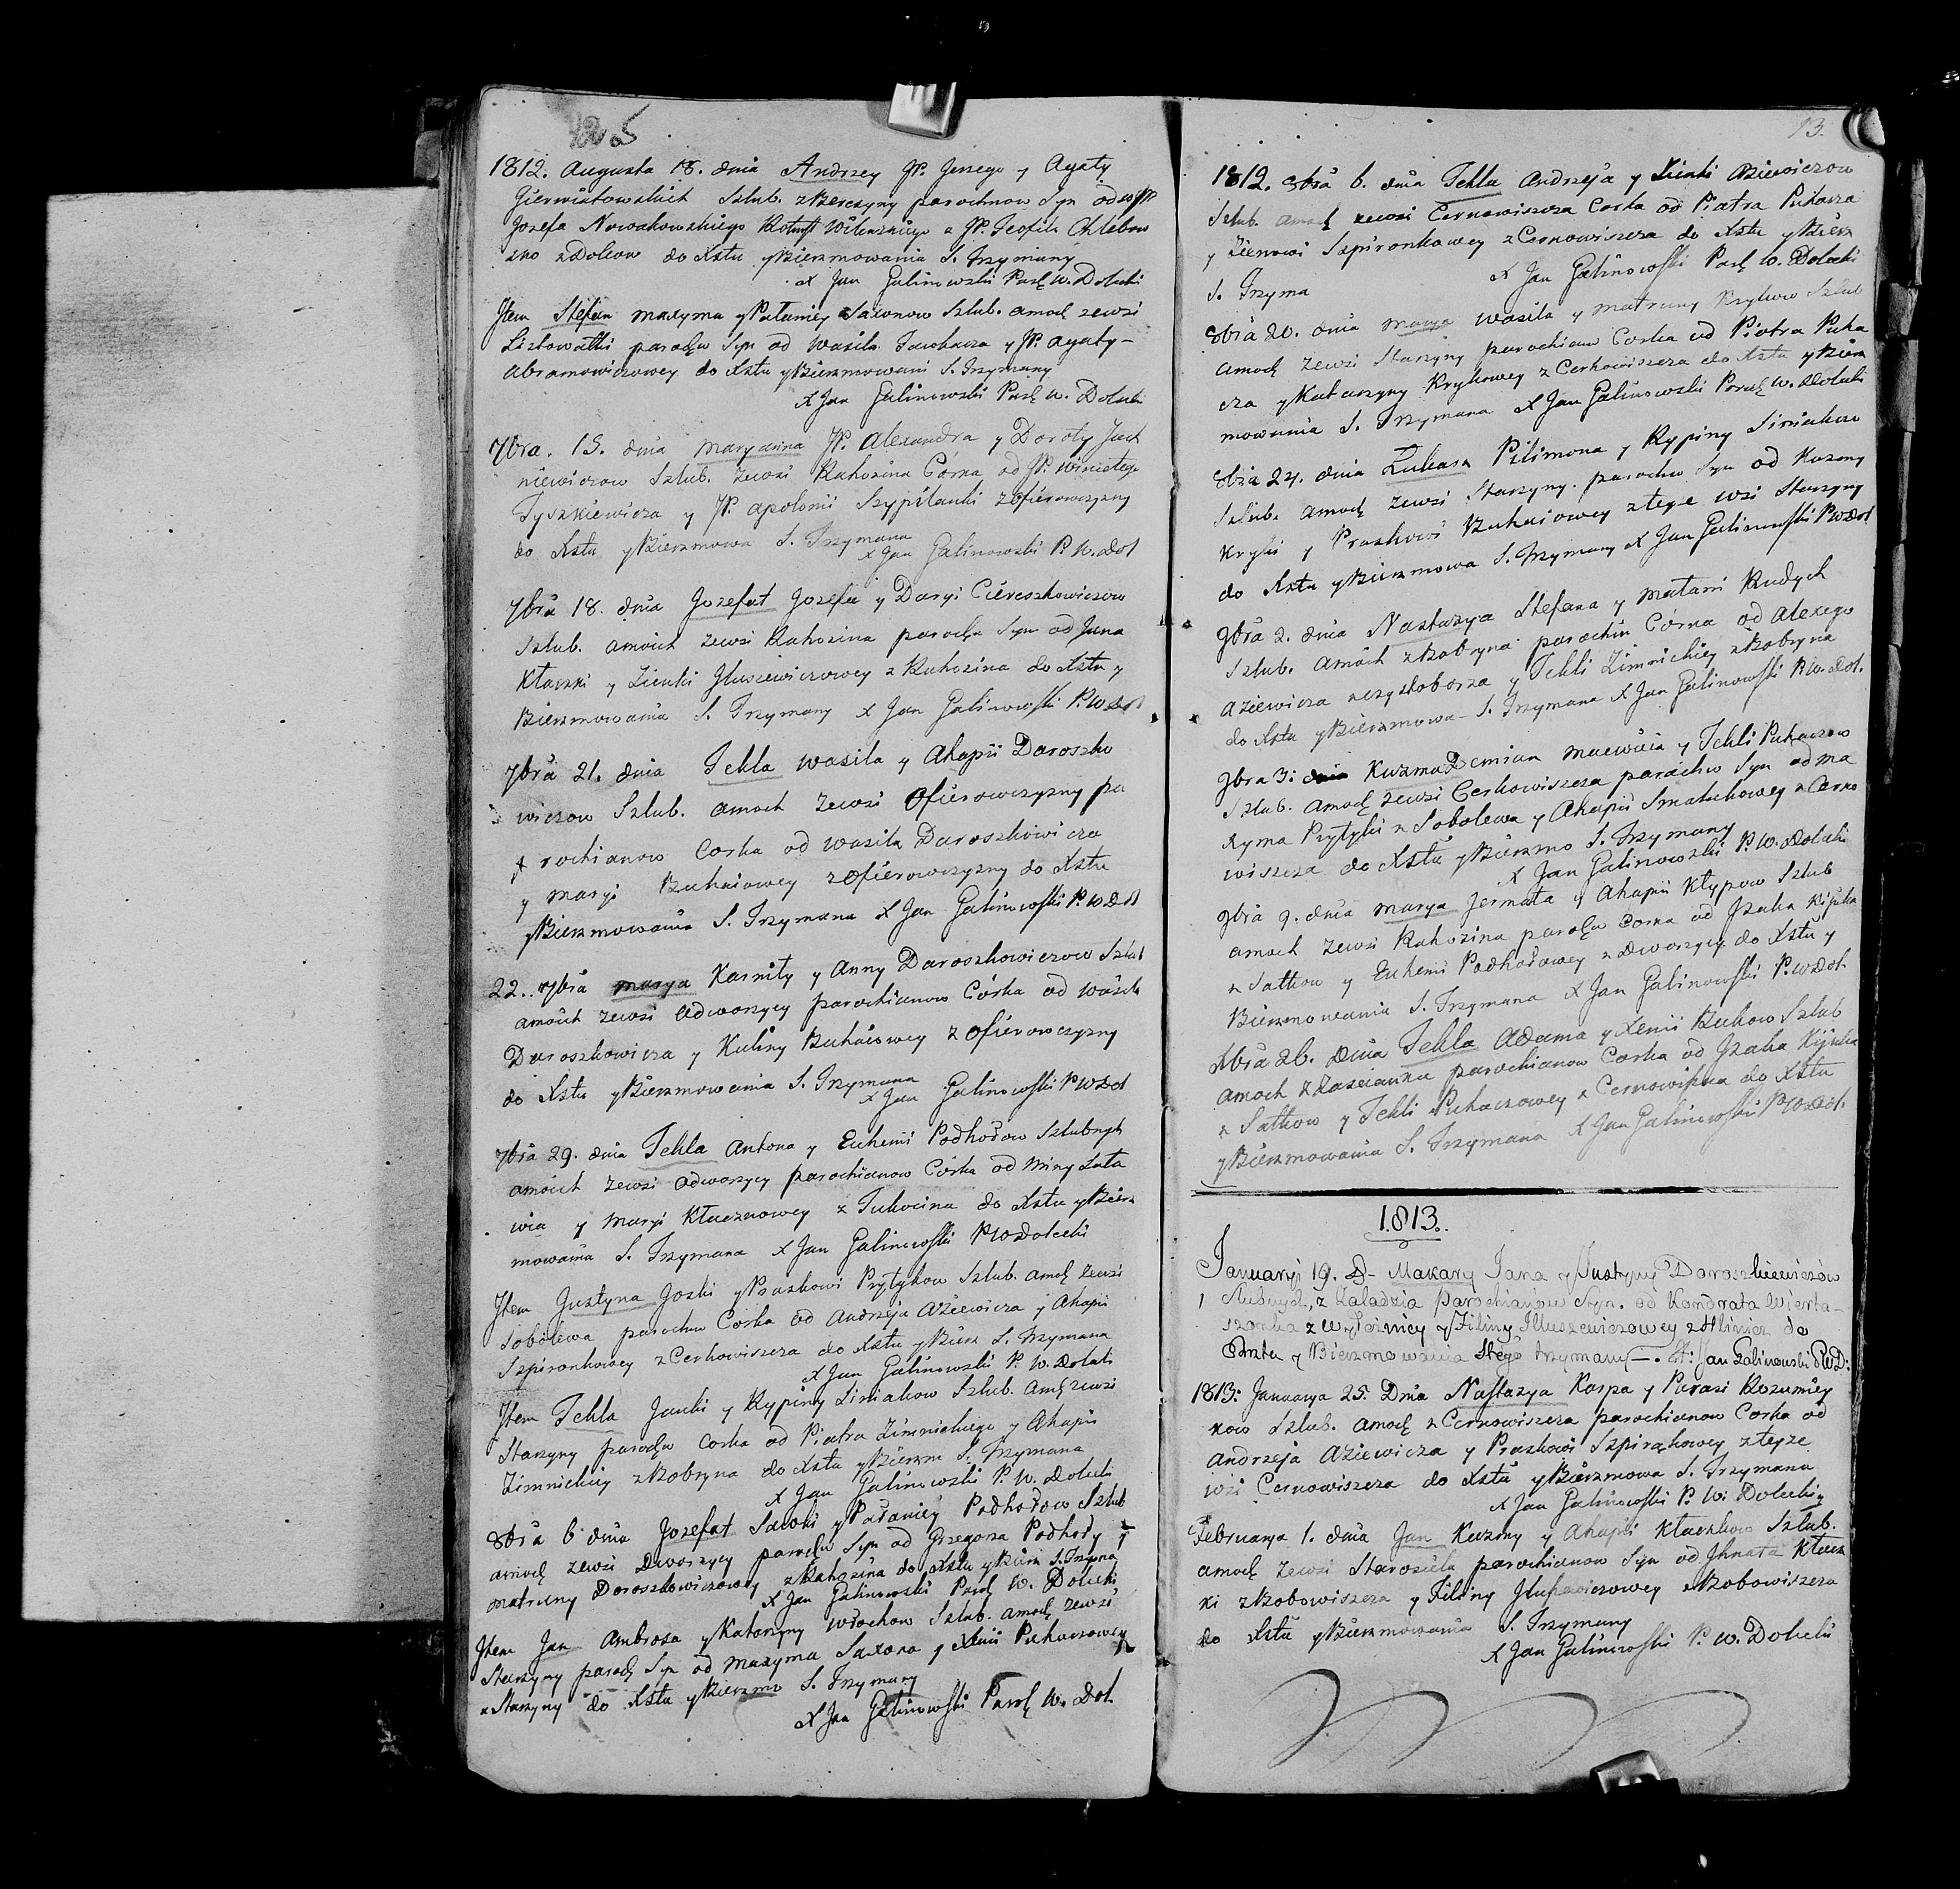 1812. Augusta 18. dnia Andrzey JP. Jerzego y Agaty
Gierwiatowskich Szlub. z Berezyny parochnow Syn od WJP.
Jozefa Nowakowskiego Rotmst Wilenskiego a JP. Teofili Chlebow
sko z Dolcow do Xstu y Bierzmowania S. Trzymany
X Jan Galinowski Parch W. Dolecki
Jtem Stefan Maxyma y Pałaniey Saxonow Szlub. amoch zewsi
Listowatki parochn Syn od Wasila y JP. Agaty-
Abramowiczowey do Xstu y Bierzmowani S. Trzymany
X Jan Galinowski Parch W. Dolecki
7bra. 15. dnia Maryanna JP. Alexandra y Doroty Juch
niewiczow Szlub. zewsi Rahozina Córka od JP. Winczetego
Tyszkiewicza y JP. Apolonii Szypilanki z Ofierowszyzny
do Xstu y Bierzmowa S. Trzymana
X Jan Galinowski P. W. Dol
7bra 18. dnia Jozefat Jozefa y Daryi Ciereszkowiczow
Szlub. amoich zewsi Rahozina parochn Syn od Jana
Kłaczki y Zienki Jlusiewiczowey z Rahozina do Xstu y
Bierzmowania S. Trzymany X Jan Galinowski P. W Dol
7bra 21. dnia Tekla Wasila y Ahapii Daroszko
wiczow Szlub. amoch zewsi Ofierowszyzny pa
rochianow Corka od Wasila Daroszkowicza
y Maryi Buhaiowey z Ofierowszyzny do Xstu
y Bierzmowania S. Trzymana X Jan Galinowski P. W Dol
22. 7bra Marya Karniły y Anny Daroszkowiczow Szlub
amoich zewsi Odworzycy parochianow Córka od Wasila
Daroszkowicza y Kuliny Buhaiowey z Ofierowszyzny
do Xstu y Bierzmowania S. Trzymana
X Jan Galinowski P W Dol
7bra 29. dnia Tekla Antona y Euhenii Podhołow Szlubnych
amoich zewsi Odworzycy parochianow Córka od Miny Łata
wia y Maryi Kłaczkowey z Tuhocina do Xstu y Bierz
mowania S. Trzymana X Jan Galinowski P W Dolecki
Jtem Justyna Joski y Praskowi Prytykow Szlub. amoch zewsi
Sobolewa parochn Corka od Andrzeja Aziewicza y Ahapii
Szpironkowey z Cerkowiszcza do Xstu y Bierz S. Trzymana
X Jan Galinowski P. W. Dolecki
Jtem Tekla Janki y Krypiny Siniakow Szlub. amch zewsi
Starzyny parochn Corka od Piatra Zimnickiego y Ahapii
Zimnickiey z Bobryna do Xstu y Bierzm S. Trzymana
X Jan Galinowski P. W. Dolecki
8bra 6 dnia Jozefat Sawki y Pałaniey Podhołow Szlub
amoch zewsi Dworzycy parochn Syn od Grzegorza Podhoły y
Matruny Daroszkowiczowey z Rahozina do Xstu y Bierz S. Trzyma
X Jan Galinowski Parch W. Dolecki
Jtem Jan Ambroza y Katarzyny Włochow Szlub. amoch zewsi
Starzyny paroch Syn od Maxyma Saxona y Xenii Puhaczowey
z Starzyny do Xstu y Bierzmo S. Trzymany
X Jan Galinowski Parch W. Dol.
13.
1812. 8bra 6. dnia Tekla Andrzeja y Zienki Aziewiczow
Szlub amoch zewsi Cernowiszcza Corka od Piatra Puhacza
y Zienowi Szpironkowey z Cernowiszcza do Xstu y Bierz
S. Trzyma X Jan Galinowski Parch W. Dolecki
8bra 20. dnia Marya Wasila y Matruny Krykow Szlub
amoch zewsi Starzyny parochian Corka od Piatra Puha
cza y Katarzyny Krykowey z Cerkowiszcza do Xstu y Bierz
mowania S. Trzymana X Jan Galinowski Parch W. Dolecki
8bra 24. dnia Łukasz Pilimona y Krypiny Siniakow
Szlub. amoch zewsi Starzyny. parochn Syn od Kuzmy
Kryki y Praskowi Buhaiowey zteyże wsi Starzyny
do Xstu y Bierzmowa S. Trzymany X Jan Galinowski P W Dol
9bra 2. dnia Nastazya Stefana y Matani Rudych
Szlub. amoich z Bobryna parochn Córka od Alexego
Aziewicza z y Tekli Zimnickiey z Bobryna
do Xstu y Bierzmowa- S. Trzymana X Jan Galinowski P. W. Dol.
9bra 3: dnia Kuzma Demian Macwieia y Tekli Puhaczow
Szlub. amoch zewsi Cerkowiszcza parochn Syn od Ma
xyma Prytyki z Sobolewa y Ahapii Smatukowey z Cerko
wiszcza do Xstu y Bierzmo S. Trzymany
X Jan Galinowski P. W. Dolecki
9bra 9. dnia Marya Jermała y Ahapii Kłypow Szlub
amoch zewsi Rahozina parochn Corka od Jzaka Kijuka
z Satkow y Euhenii Podhołowey z Dworzycy do Xstu y
Bierzmowania S. Trzymana X Jan Galinowski P. W Dol.
Xbra 26. dnia Tekla Adama y Xenii Żukow Szlub
amoch z Zascianka parochianow Corka od Jzaka Kijuka
z Satkow y Tekli Puhaczowey z Cernowiszcza do Xstu
y Bierzmowania S. Trzymana X Jan Galinowski P W Dol.
1813.
Januaryi 19. D- Makary Jana y Justyny Daroszkiewiczów
Slubnych, z Kaladzia Parochianow Syn. od Kondrata Wierta-
szonka z Wyłoznicy y Filimy Jlluszewiczowey z Hlinicz do
Chrztu y Bierzmowania Stego trzymany —. X: Jan Galinowski P W D:
1813: Januarya 25. Dnia Nastazya Karpa y Parasi Kozumiey
kow Szlub. amoch z Cernowiszcza parochianow Corka od
Andrzeja Aziewicza y Praskowi Szpirąkowey zteyze
wsi Cernowiszcza do Xstu y Bierzmowa S. Trzymana
X Jan Galinowski P. W: Dolecki
Februarya 1. dnia Jan Kuzmy y Ahapii Kłaczkow Szlub.
amoch zewsi Starosiela parochianow Syn od Jhnata Kłacz
ki z Bobowiszcza y Filimy Jluszewiczowey z Bobowiszcza
do Xstu y Bierzmowania S. Trzymany
X Jan Galinowski P. W. Dolecki